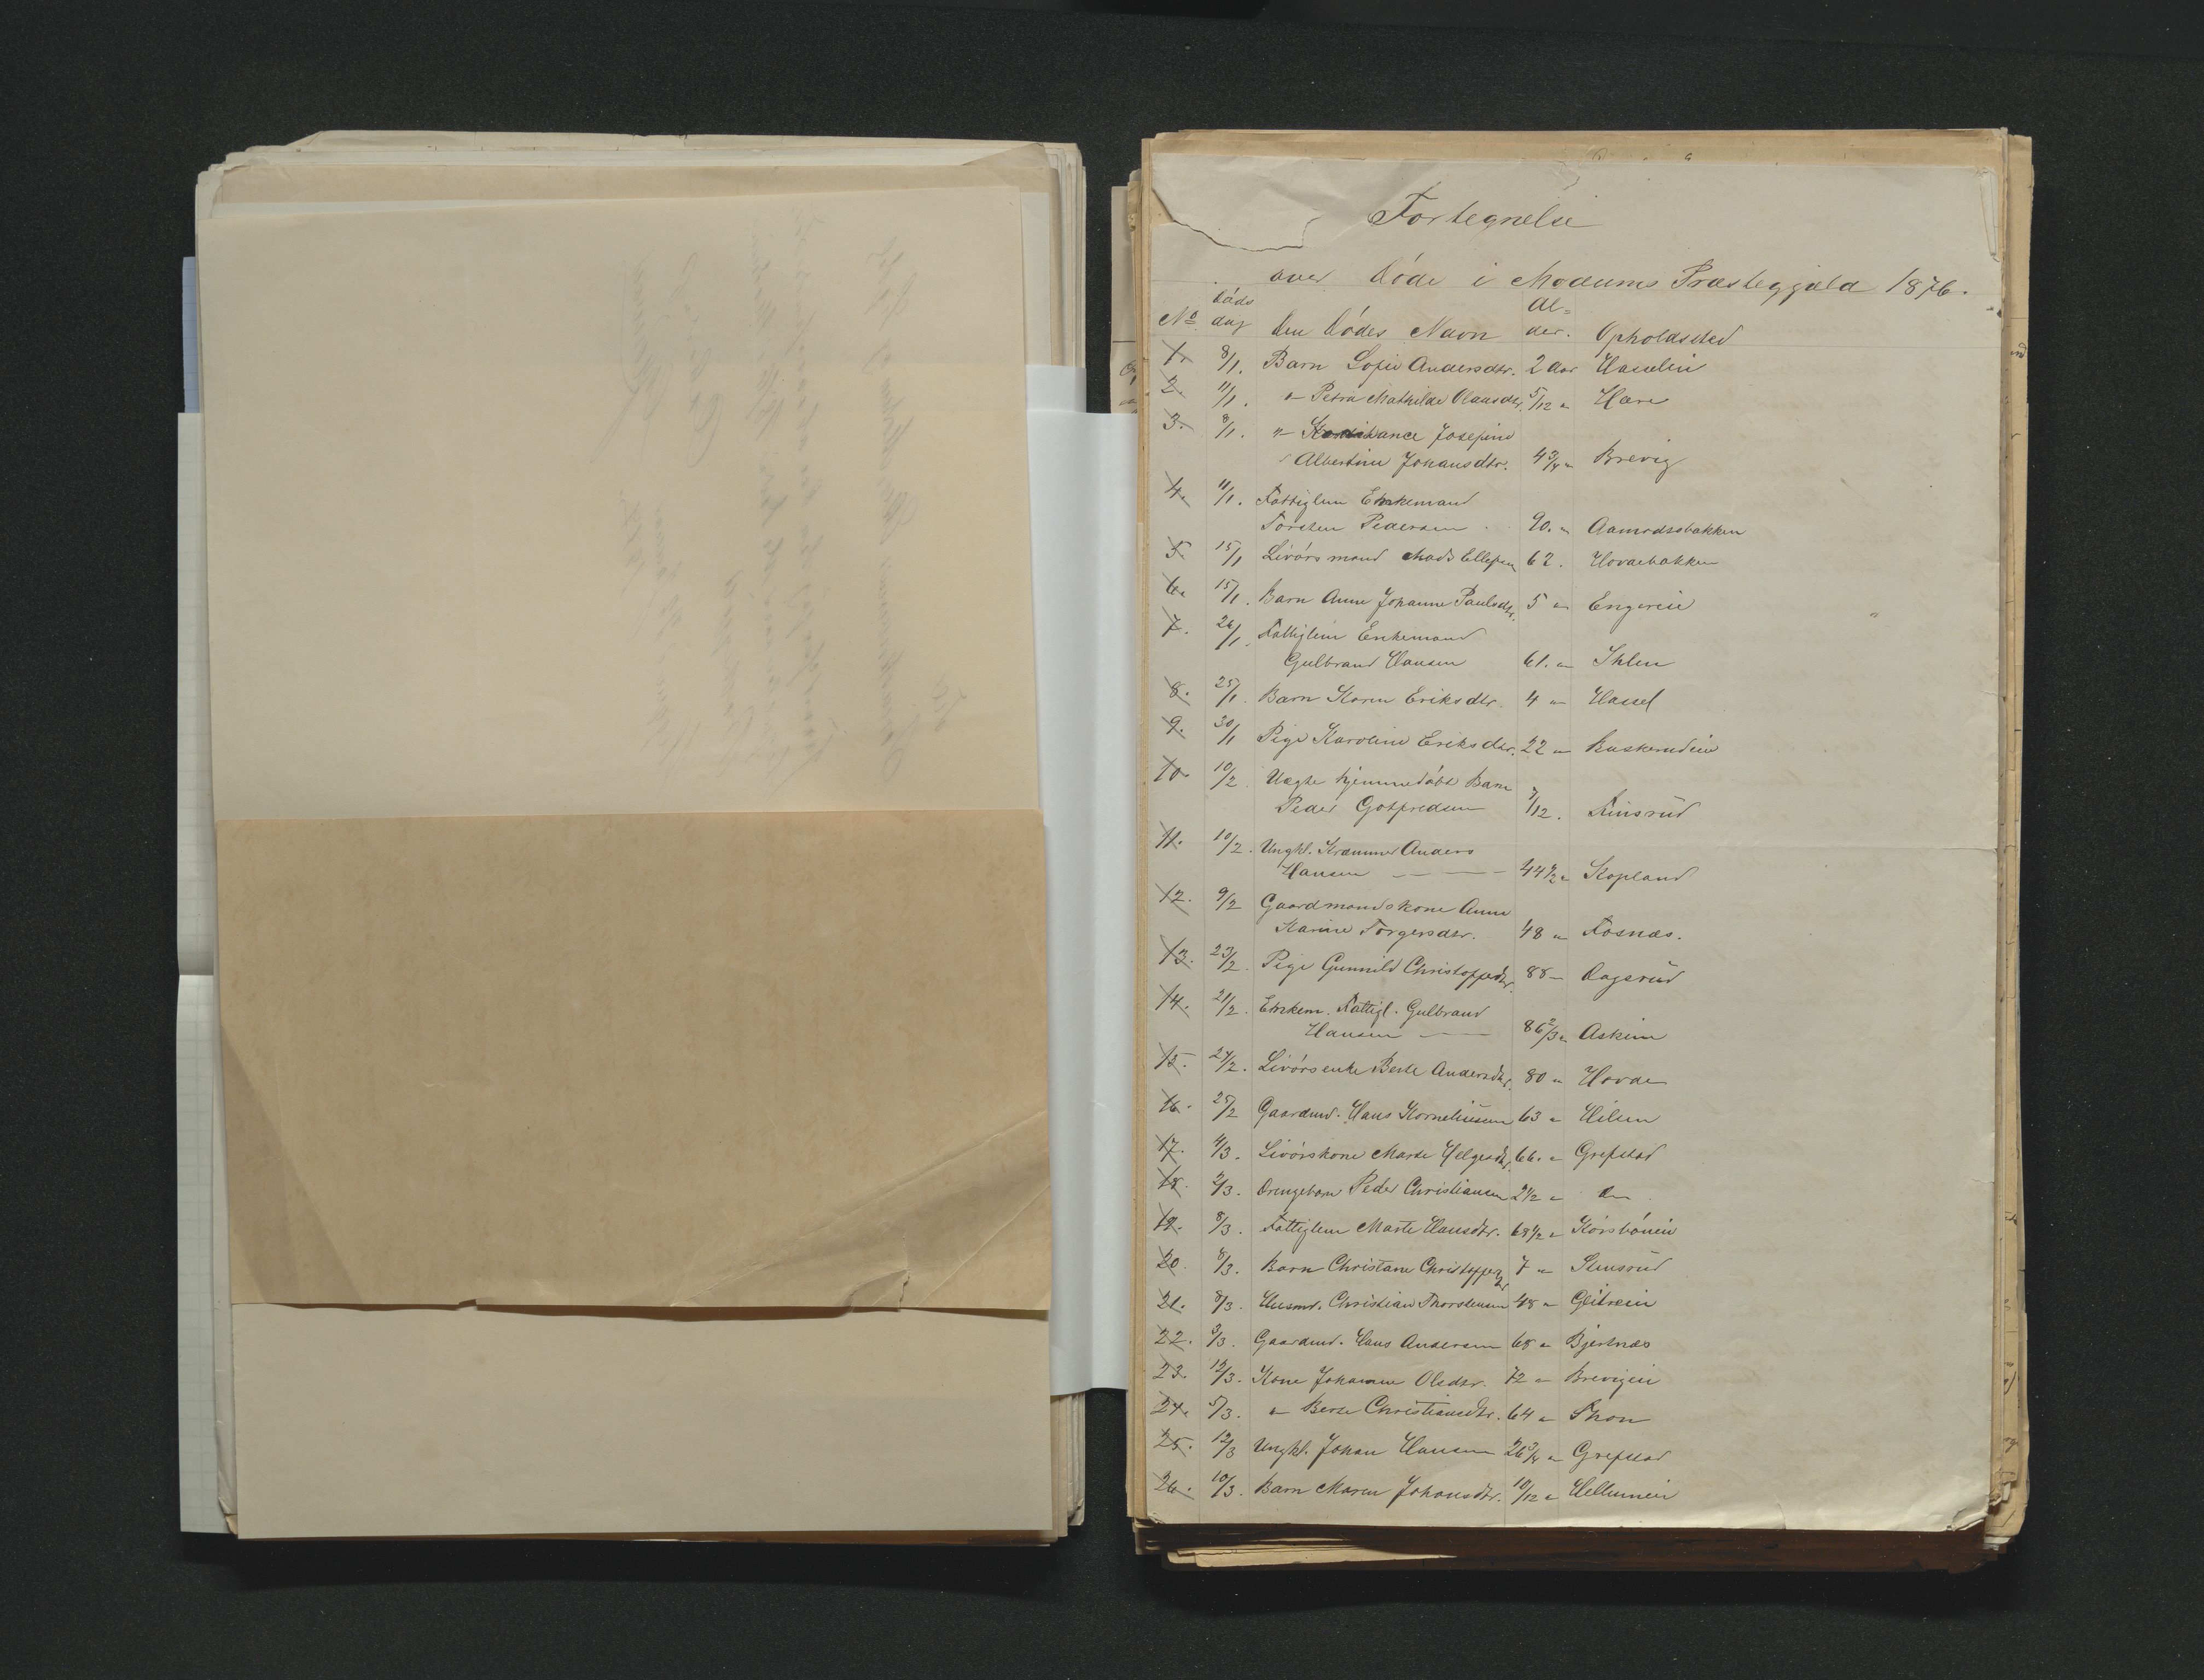 Fortegnelse
over døde i Modums Præstegjæld 1876.
No Døds dag Den Dødes Navn Al= der. Opholdssted
1. 8/1. Barn Sofie Andersdtr. 2 Aar Hasselen
2. 11/1. " Petra Mathilde Olausdtr. 5/12 " Hære
3. 8/1. " Konstance Josefine
Albertine Johansdtr. 4 3/4 " Brevig
4. 11/1. Fattiglem Enkemand
Torsten Pedersen 90. " Aamodtsbakken
5 15/1 Livørsmand Mads Ellefsen 62. Hovdebakken
6. 15/1. Barn Anne Johanne Paulsdtr. 5 " Engerie
7. 26/1. Fattiglem Enkemand
Gulbrand Hansen 61. " Ihlen
8. 25/1. Barn Karen Eriksdtr. 4 " Hassel
9. 30/1 Pige Karoline Eriksdtr. 22 " Buskerudeie
10. 10/2. Uægte hjemmedøbt Barn
Peder Gotfredsen /12. Finsrud
11. 10/2. Ungkl. Kræmmer Anders
Hansen 44 1/2 " Kopland
12. 9/2 Gaardmandskone Anne
Karine Torgersdtr. 48 " Fosnæs.
13. 23/2. Pige Gunnild Christoffersdtr. 88 " Dagsrud
14. 21/2. Enkem. Fattigl. Gulbrand
Hansen 86 2/3 " Askim
15. 24/2. Livørsenke Berte Andersdtr. 80 " Hovde
16. 25/2 Gaardmd. Hans Korneliussen 63 " Hilen
17. 4/3. Livørskone Marte Helgesdtr. 66. " Grefstad
18. 2/3. Drengebarn Peder Christiansen 2 1/2 " Do
19. 8/3. Fattiglem Marte Hansdtr. 68 1/2 " Korsbøneie
20. 8/3. Barn Christiane Christoffersdtr 7 " Stensrud
21. 8/3. Husmd. Christian Thorstensen 48 " Glitreeie
22. 3/3. Gaardmd. Hans Andersen 68 " Bjertnæs
23. 12/3. Kone Johanne Olsdtr. 72 " Brevigeie
24. 5/3. " Berte Christiansdtr. 64 " Thon
25. 12/3 Ungkl. Johan Hansen 26 3/4 " Grefstad
26. 10/3. Barn Maren Johansdtr. 10/12 " Hellumeie